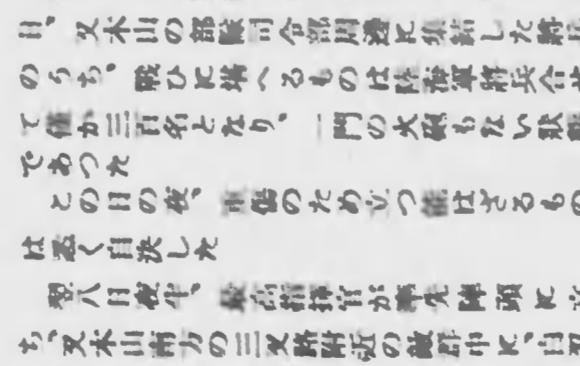 日、又木山の部隊司令部周邊に集結した將
のうち、戰ひに堪へるものは陸海軍將兵合せ
て僅か三百名となり、一門の火砲もない狀態
であつた
この日の夜、重傷のため立つ能はざるもの
は悉く自決した
翌八日夜半、最高指揮官が率先陣頭に立
ち、又木山南方の三叉路附近の敵群中に、白刃